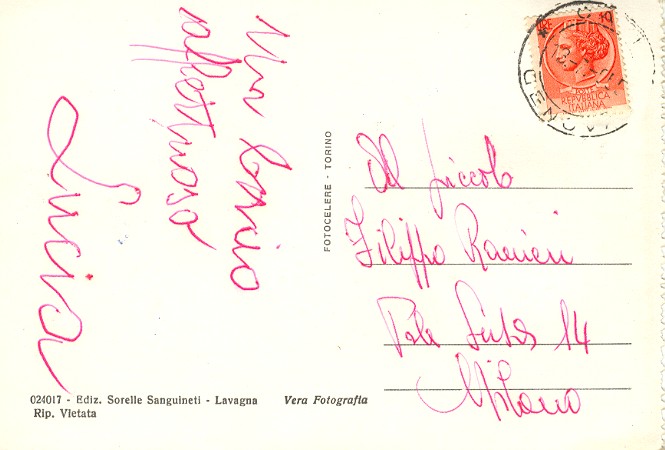 Un bacio
affettuoso
Lucia
FOTOCELERE - TORINO
LIRE
REPUBBLICA
ITALIANA
Al piccolo
Filippo Ranieri
14
Milano
024017 - Ediz. Sorelle Sanguineti - Lavagna
Rip. Vietata
Vera Fotografia